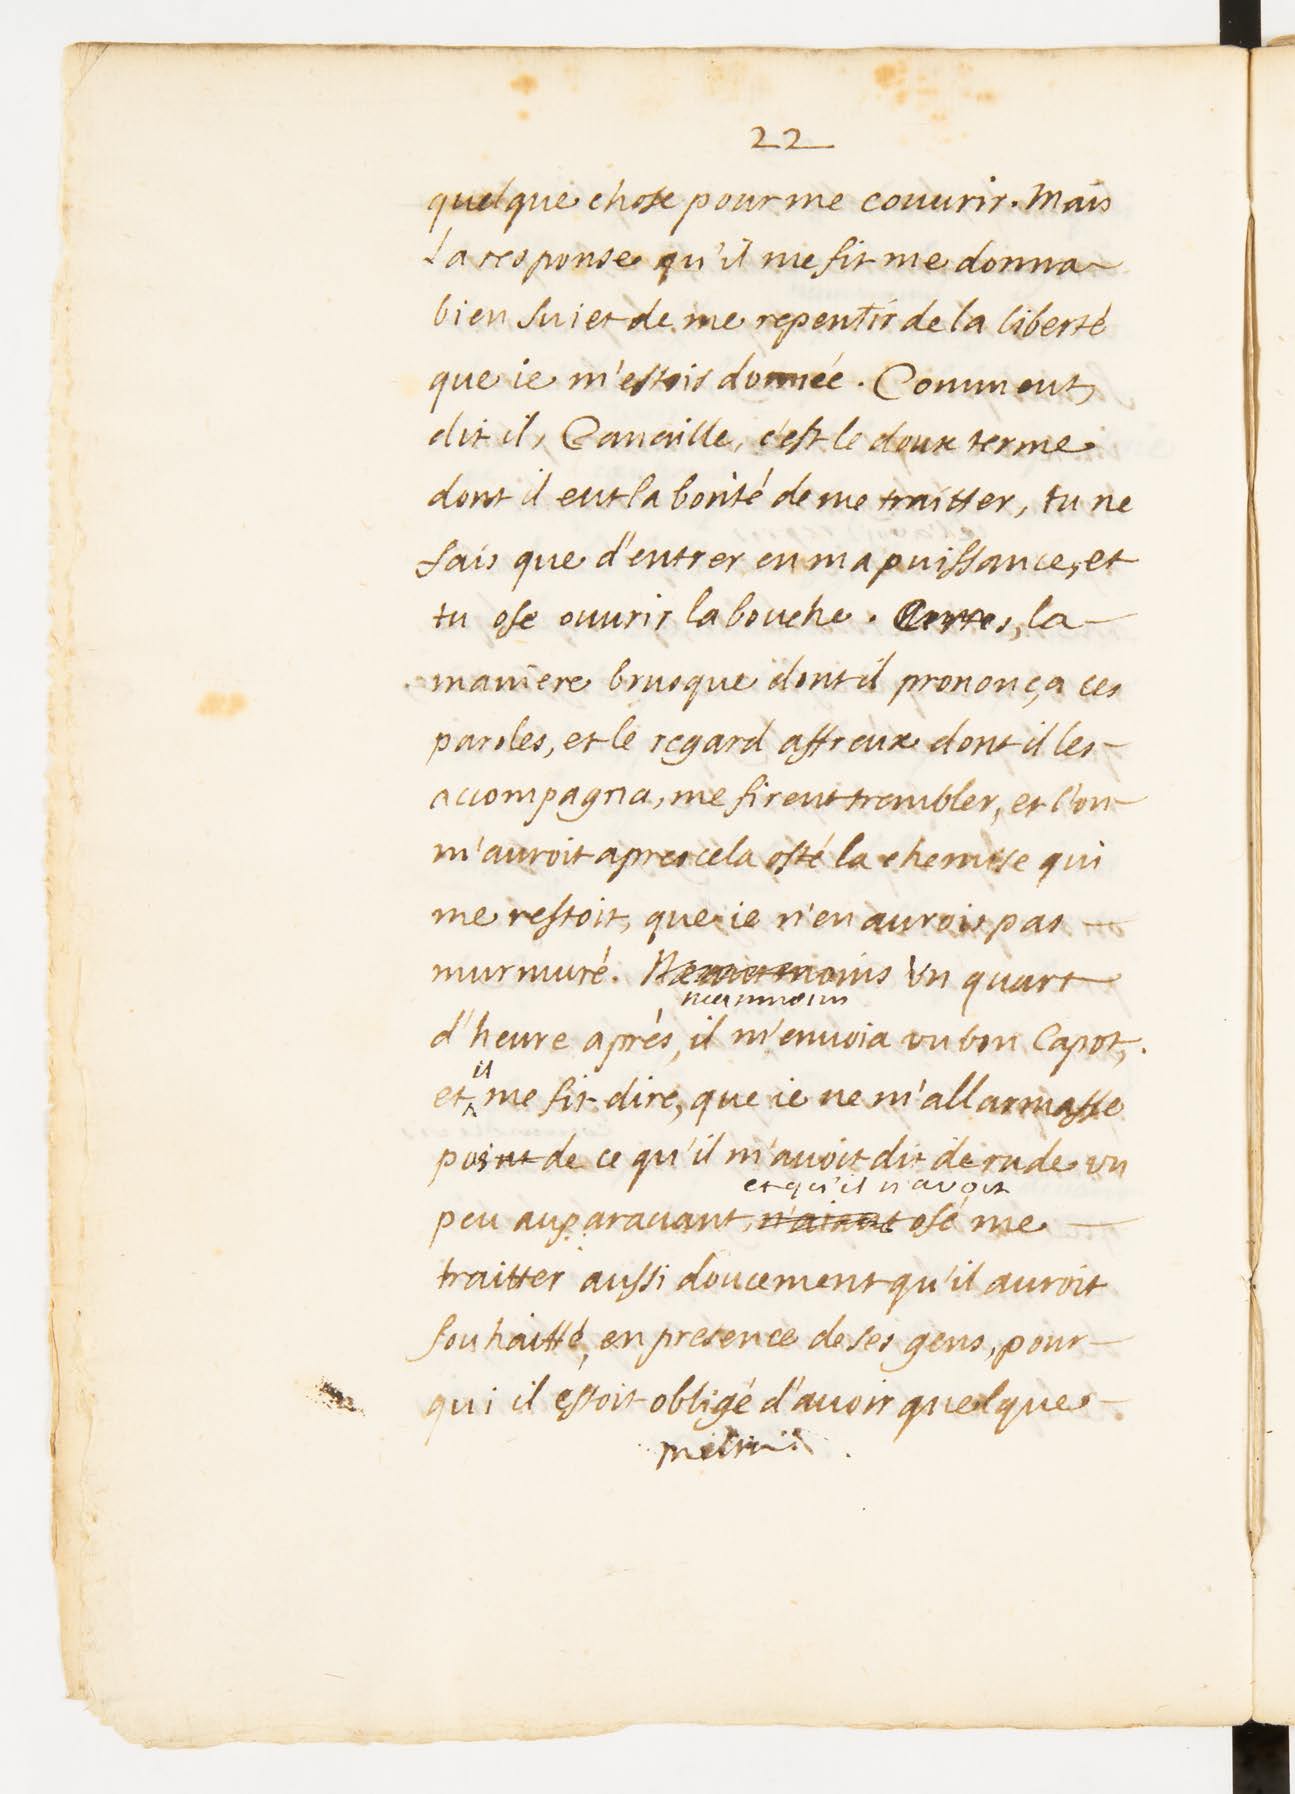 22
quelque chose pour me couurir. Mais
La response qu'il me fit me donna
bien suiet de me repentir de la liberté
que ie m'estois donnée. Comment,
dit il, Canaille, c'est le doux terme
dont il eut la bonté de me traitter, tu ne
fais que d'entrer en ma puissance, et
tu ose ouurir la bouche. Certes, la
maniere brusque dont il prononça ces
paroles, et le regard affreux dont il les
accompagna, me firent trembler, et l'on
m'auroit apres cela osté la chemise qui
me restoit, que ie n'en aurois pas
murmuré. Neantmoins Un quart
neanmoins
d'heure aprés, il m'enuoia vn bon Capot,
il
et me fit dire, que ie ne m'allarmasse
point de ce qu'il m'auoit dit de rude vn
et qu'il n'avoit
peu auparauant, n'aiant osé me
traitter aussi doucement qu'il auroit
souhaitté, en presence de ses gens, pour
qui il estoit obligé d'auoir quelque